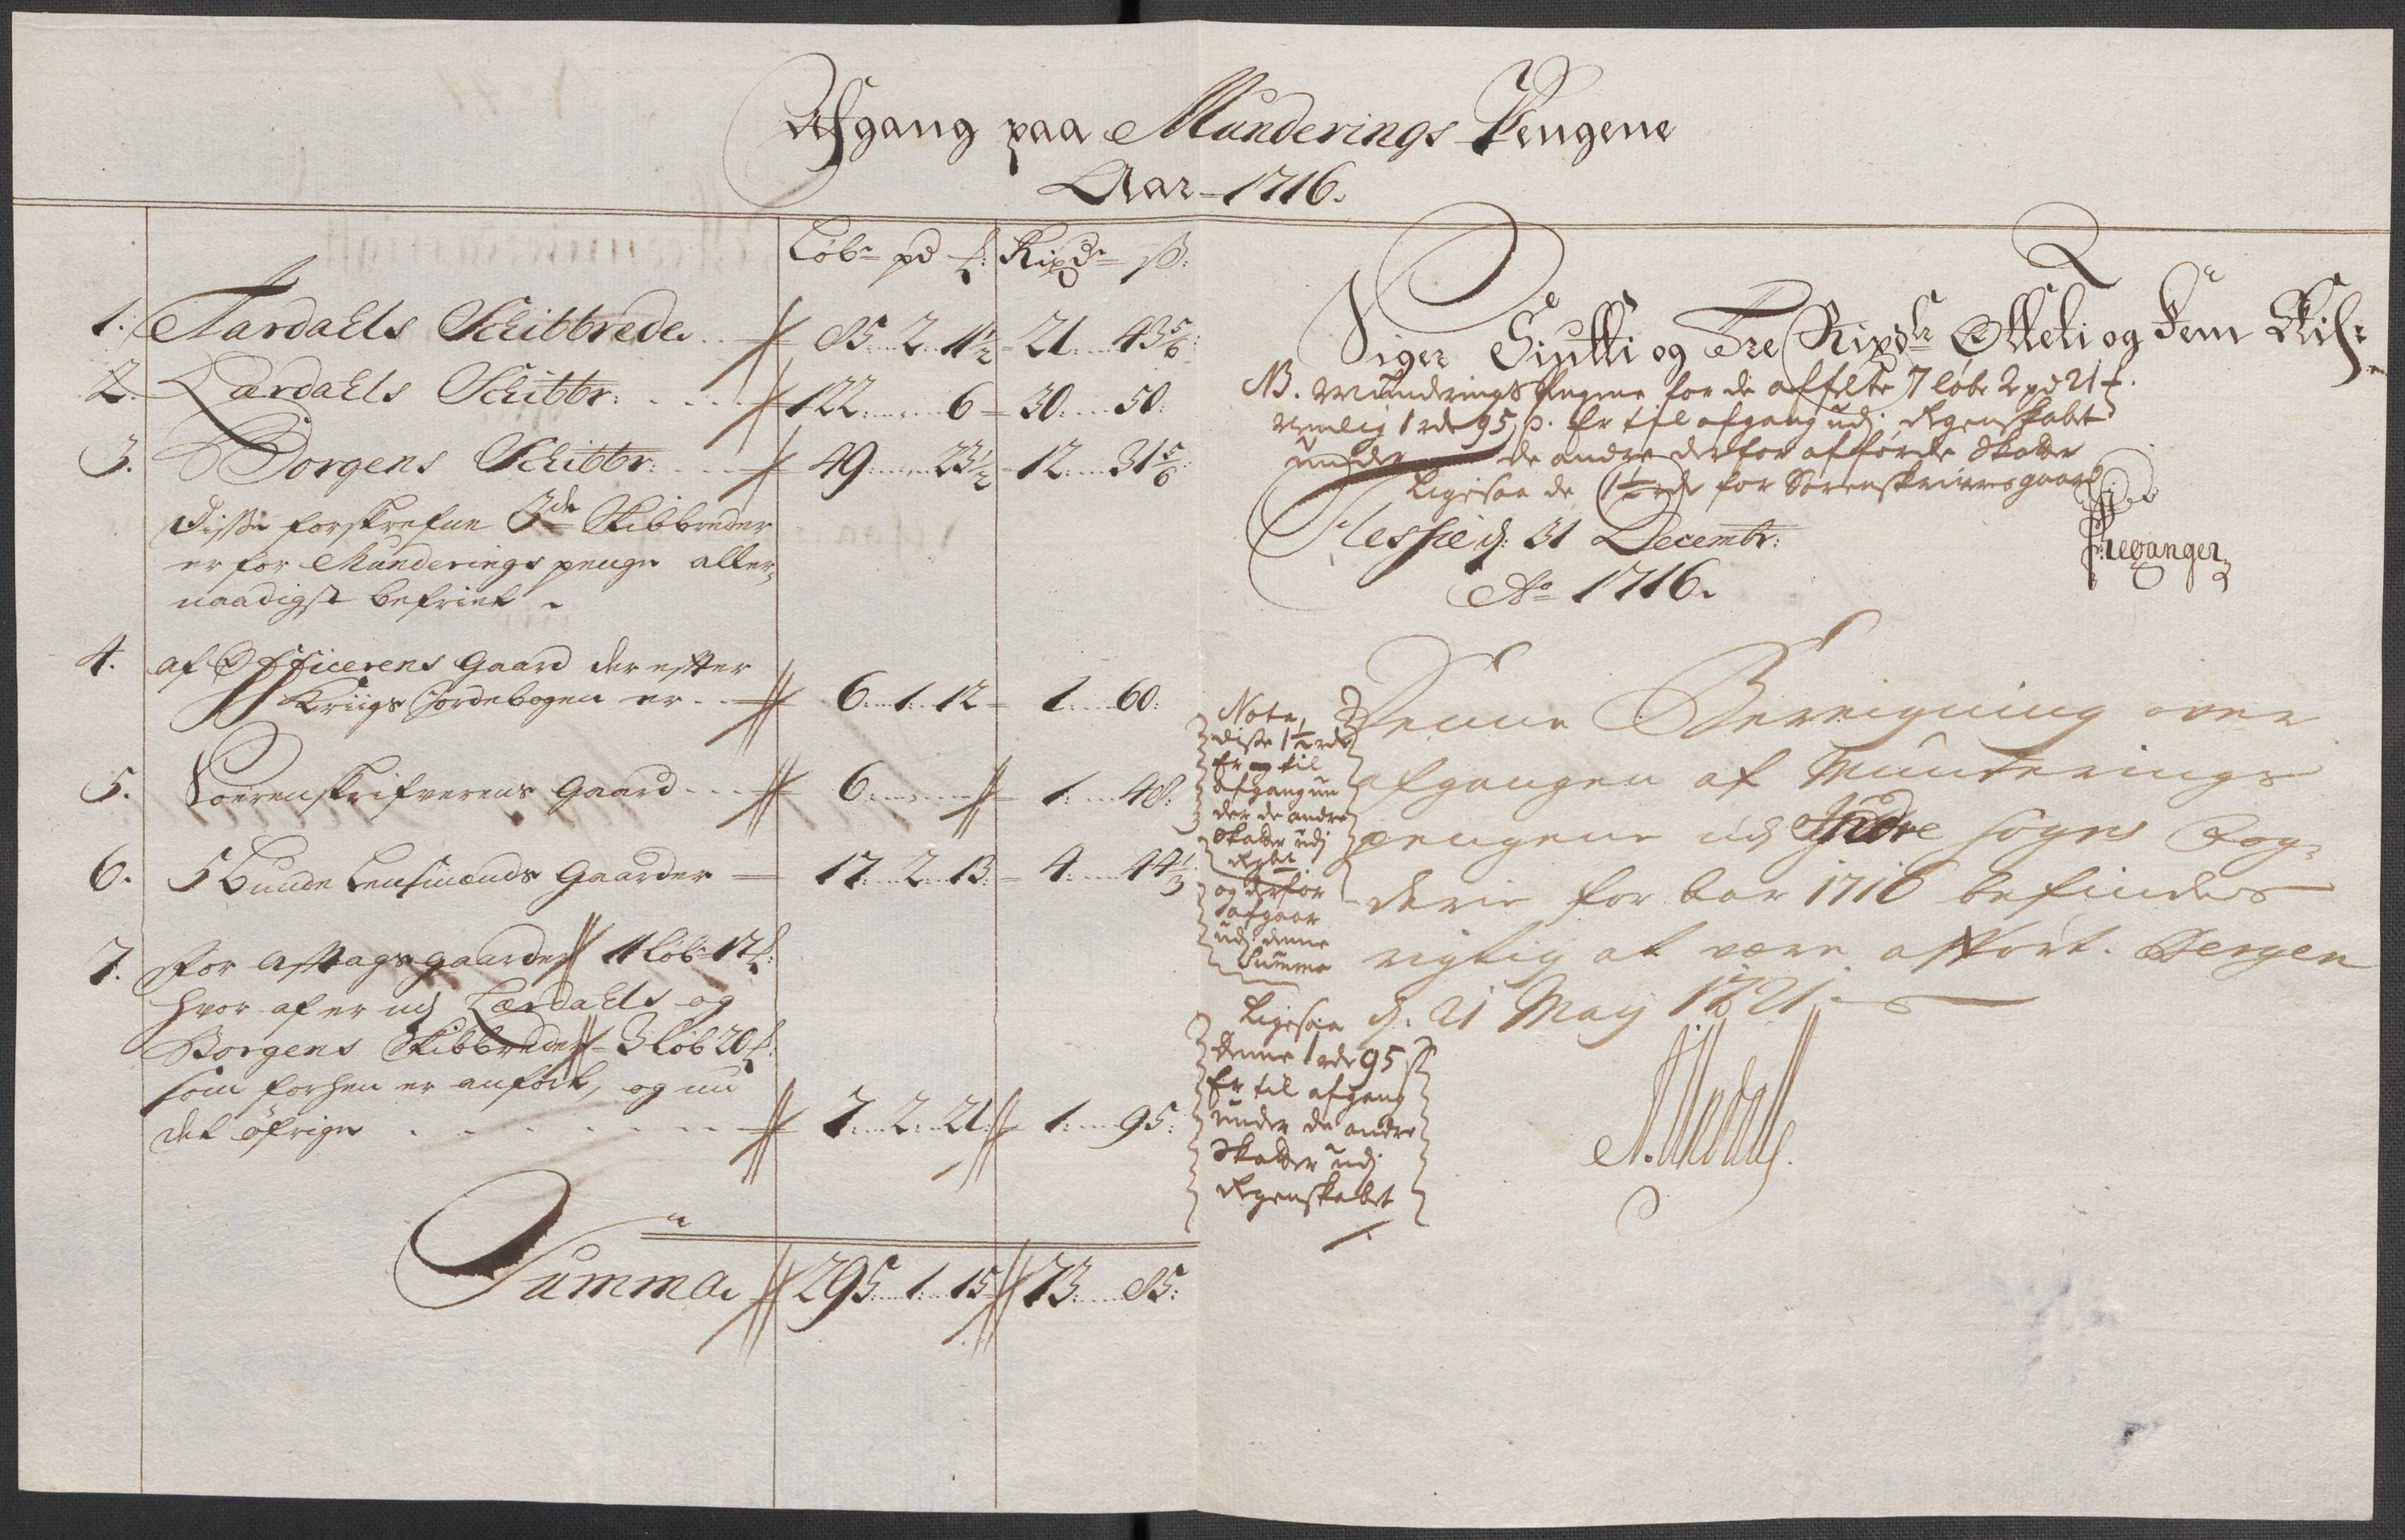 Afgang paa Munderings Pengene
Aar 1716.
Løb: pd ℔: Rixdr ß:
1. Aardahls Schibbrede 85. 2. 11½ 21. 43 5/6:
2. Lærdahls Schibbr: 122. 6 30. 50:
3. Borgens Schibbr: 49. 23½ 12. 31 5/6:
Disse forskrefne 3de Skibbreder
er for Munderings penge aller-
naadigst befriet.
4. af Officerens Gaard der efter
Kriigs Jordebogen er 6. 1. 12 1. 60:
5. Soerenskrifverens Gaard 6. 1. 48:
6. 5 Bunde Lensmænds Gaarder 17. 2. 13: 4. 44⅓
7. for Aftags gaarder 11 Løb 17 ℔:
hvor af er udj Lærdahls og
Borgens Skibbreder 3 Løb 20 ℔:
som forhen er anført, og nu
det öfrige 7. 2. 21 1. 95:
Summa 295. 1. 15 73. 85:
Siger Siutti og Tre Rixdlr Otteti og Fem Skil:
NB. Munderings Pengene for de affelte 7 løbe 2 pd 21 ℔.
Nemlig 1 rdr 95 ß. Er til afgang udj Regenskabet
under de andre derfor afførde Skatter
Ligesaa de 1½ rdr for Sorenskriverens gaard
Flesche d: 31 Decembr:
Ao 1716.
Nota,
disse 1½ rdr
Er til
afgang un
der de andre
Skatter udj
Regbt
og derfor
afgaar
udj denne
Summa
Ligesaa
denne 1 rdr 95 ß
Er til afgang
under de andre
Skatter udj
Regenskabet
Denne Bereigning over
afgangen af Munderings
pengene udj Indre Sogns Fog-
derie for aar 1716 befindes
rigtig at være afført. Bergen
d. 21 Maij 1721.